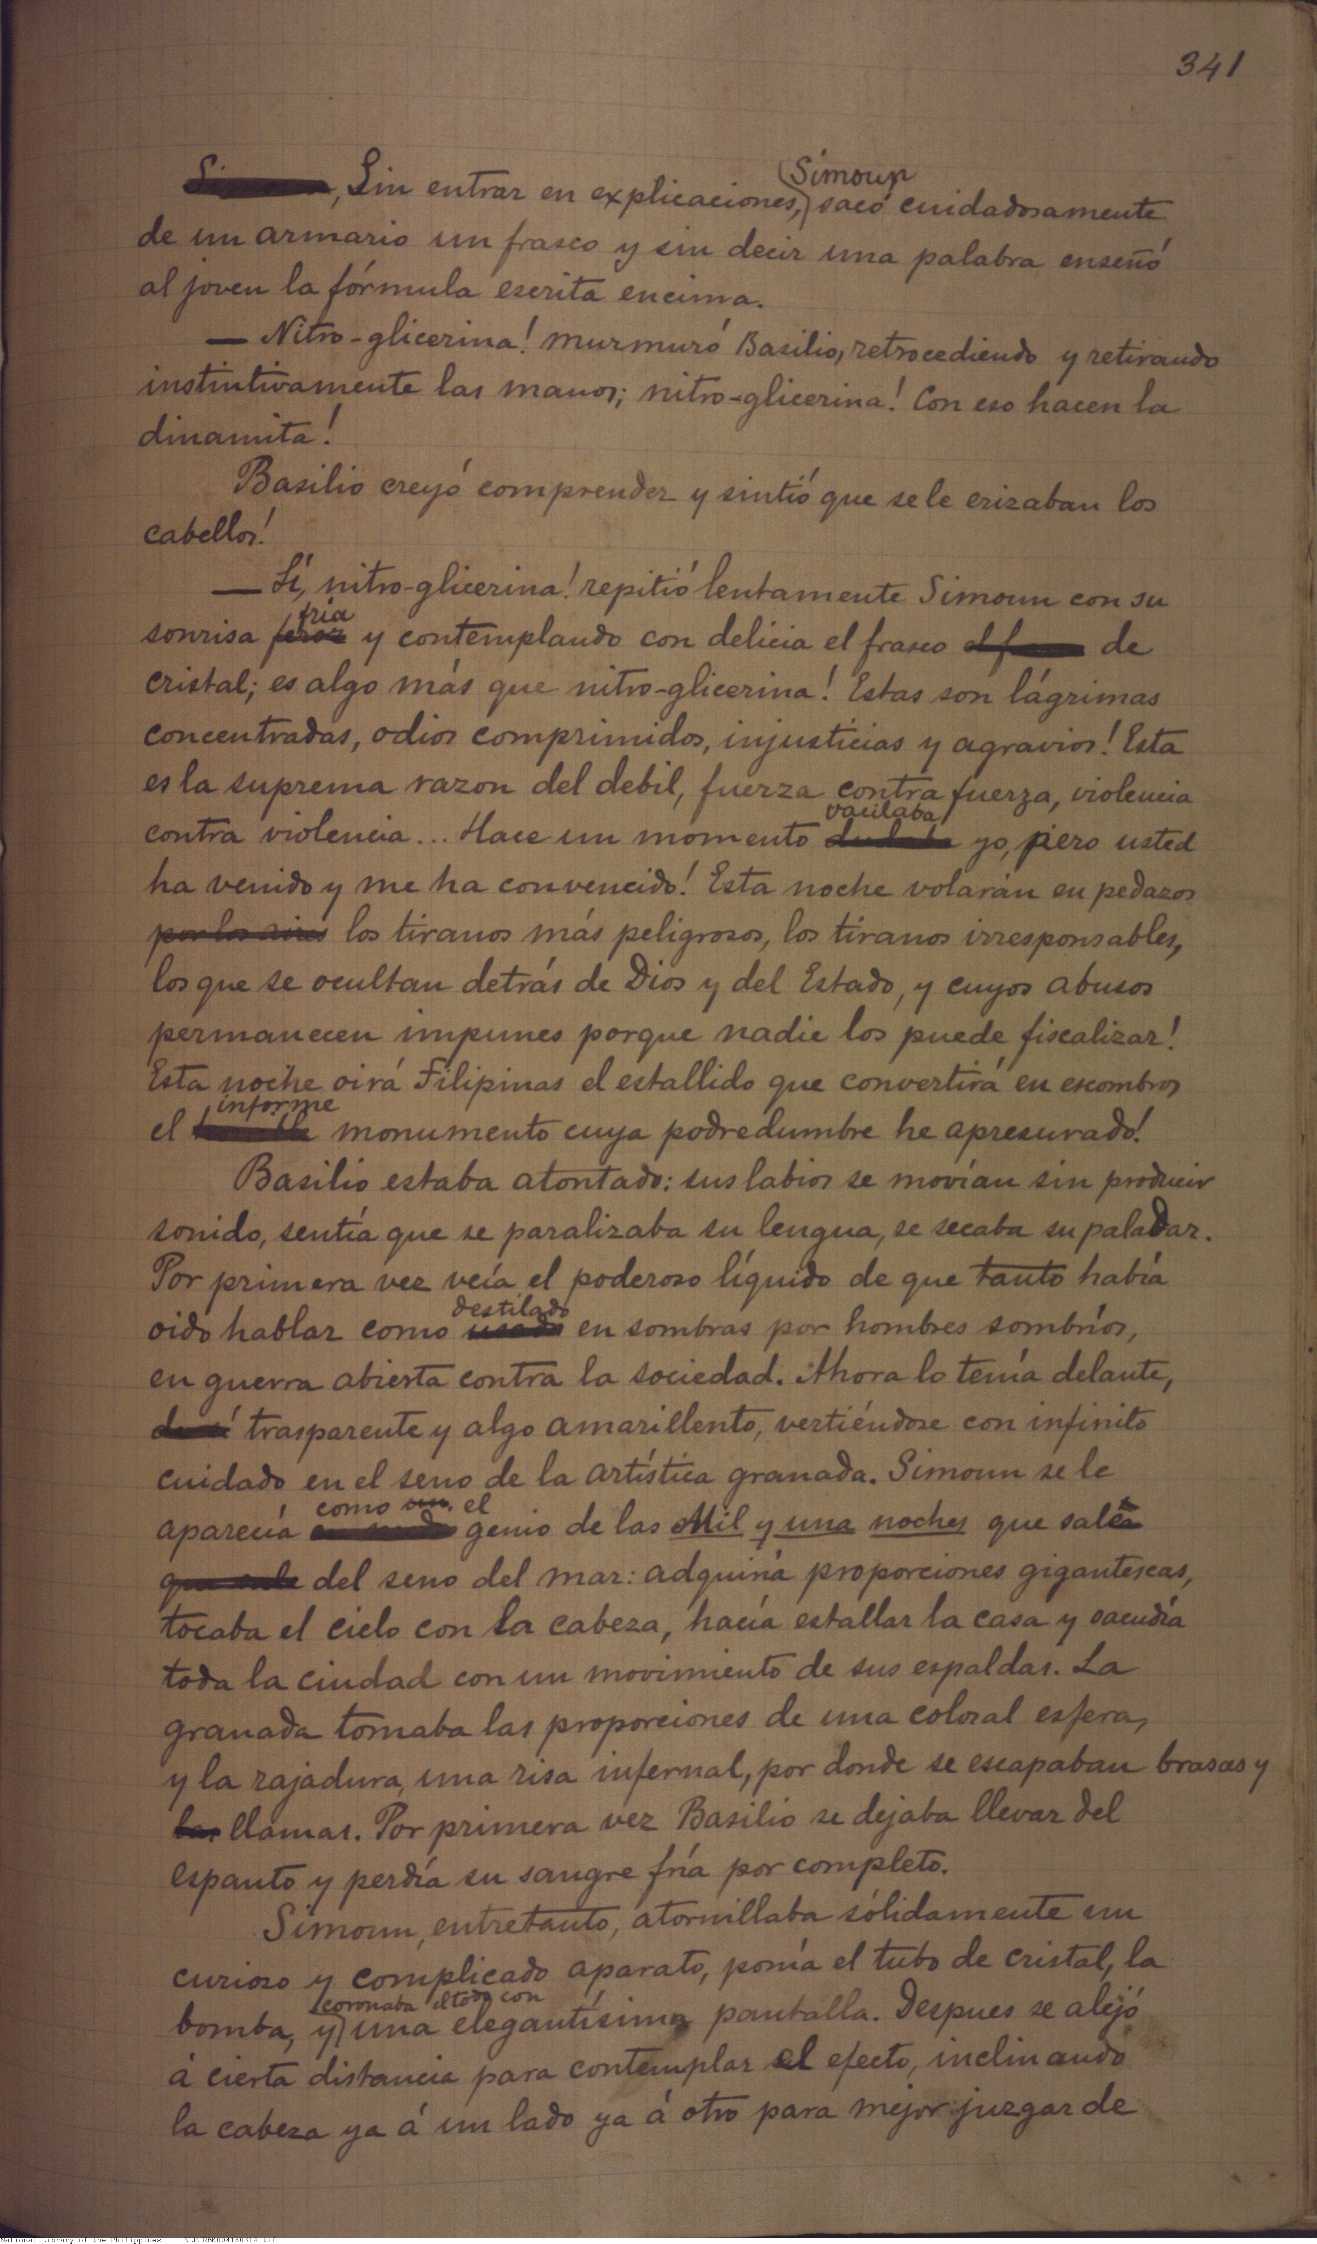 341
Simoun, Sin entrar en explicaciones, Simoun sacó cuidadosamente
de un armario un frasco y sin decir una palabra enseñó
al joven la fórmula escrita encima.
— Nitro-glicerina! murmuró Basilio, retrocediendo y retirando
instintivamente las manos; nitro-glicerina! Con eso hacen la
dinamita!
Basilio creyó comprender y sintió que se le erizaban los
cabellos!
— Sí, nitro-glicerina! repitió lentamente Simoun con su
fria
sonrisa feroz y contemplando con delicia el frasco de
cristal; es algo más que nitro-glicerina! Estas son lágrimas
concentradas, odios comprimidos, injusticias y agravios! Esta
es la suprema razon del debil, fuerza contra fuerza, violencia
vacilaba
contra violencia... Hace un momento dudaba yo, pero usted
ha venido y me ha convencido! Esta noche volarán en pedazos
por los aires los tiranos más peligrosos, los tiranos irresponsables,
los que se ocultan detrás de Dios y del Estado, y cuyos abusos
permanecen impunes porque nadie los puede fiscalizar!
Esta noche oirá Filipinas el estallido que convertirá en escombros
informe
el monumento cuya podredumbre he apresurado!
Basilio estaba atontado: sus labios se movían sin producir
sonido, sentía que se paralizaba su lengua, se secaba su paladar.
Por primera vez veía el poderoso líquido de que tanto había
destilado
oido hablar como usado en sombras por hombres sombríos,
en guerra abierta contra la sociedad. Ahora lo tenía delante,
de sí trasparente y algo amarillento, vertiéndose con infinito
cuidado en el seno de la artística granada. Simoun se le
como un el
aparecía genio de las Mil y una noches que salía
que sale del seno del mar: adquiría proporciones gigantescas,
tocaba el cielo con la cabeza, hacía estallar la casa y sacudía
toda la ciudad con un movimiento de sus espaldas. La
granada tomaba las proporciones de una colosal esfera,
y la rajadura, una risa infernal, por donde se escapaban brasas y
las llamas. Por primera vez Basilio se dejaba llevar del
espanto y perdía su sangre fría por completo.
Simoun, entretanto, atornillaba sólidamente un
curioso y complicado aparato, ponía el tubo de cristal, la
coronaba el todo con
bomba, y una elegantísima pantalla. Despues se alejó
á cierta distancia para contemplar el efecto, inclinando
la cabeza ya á un lado ya á otro para mejor juzgar de